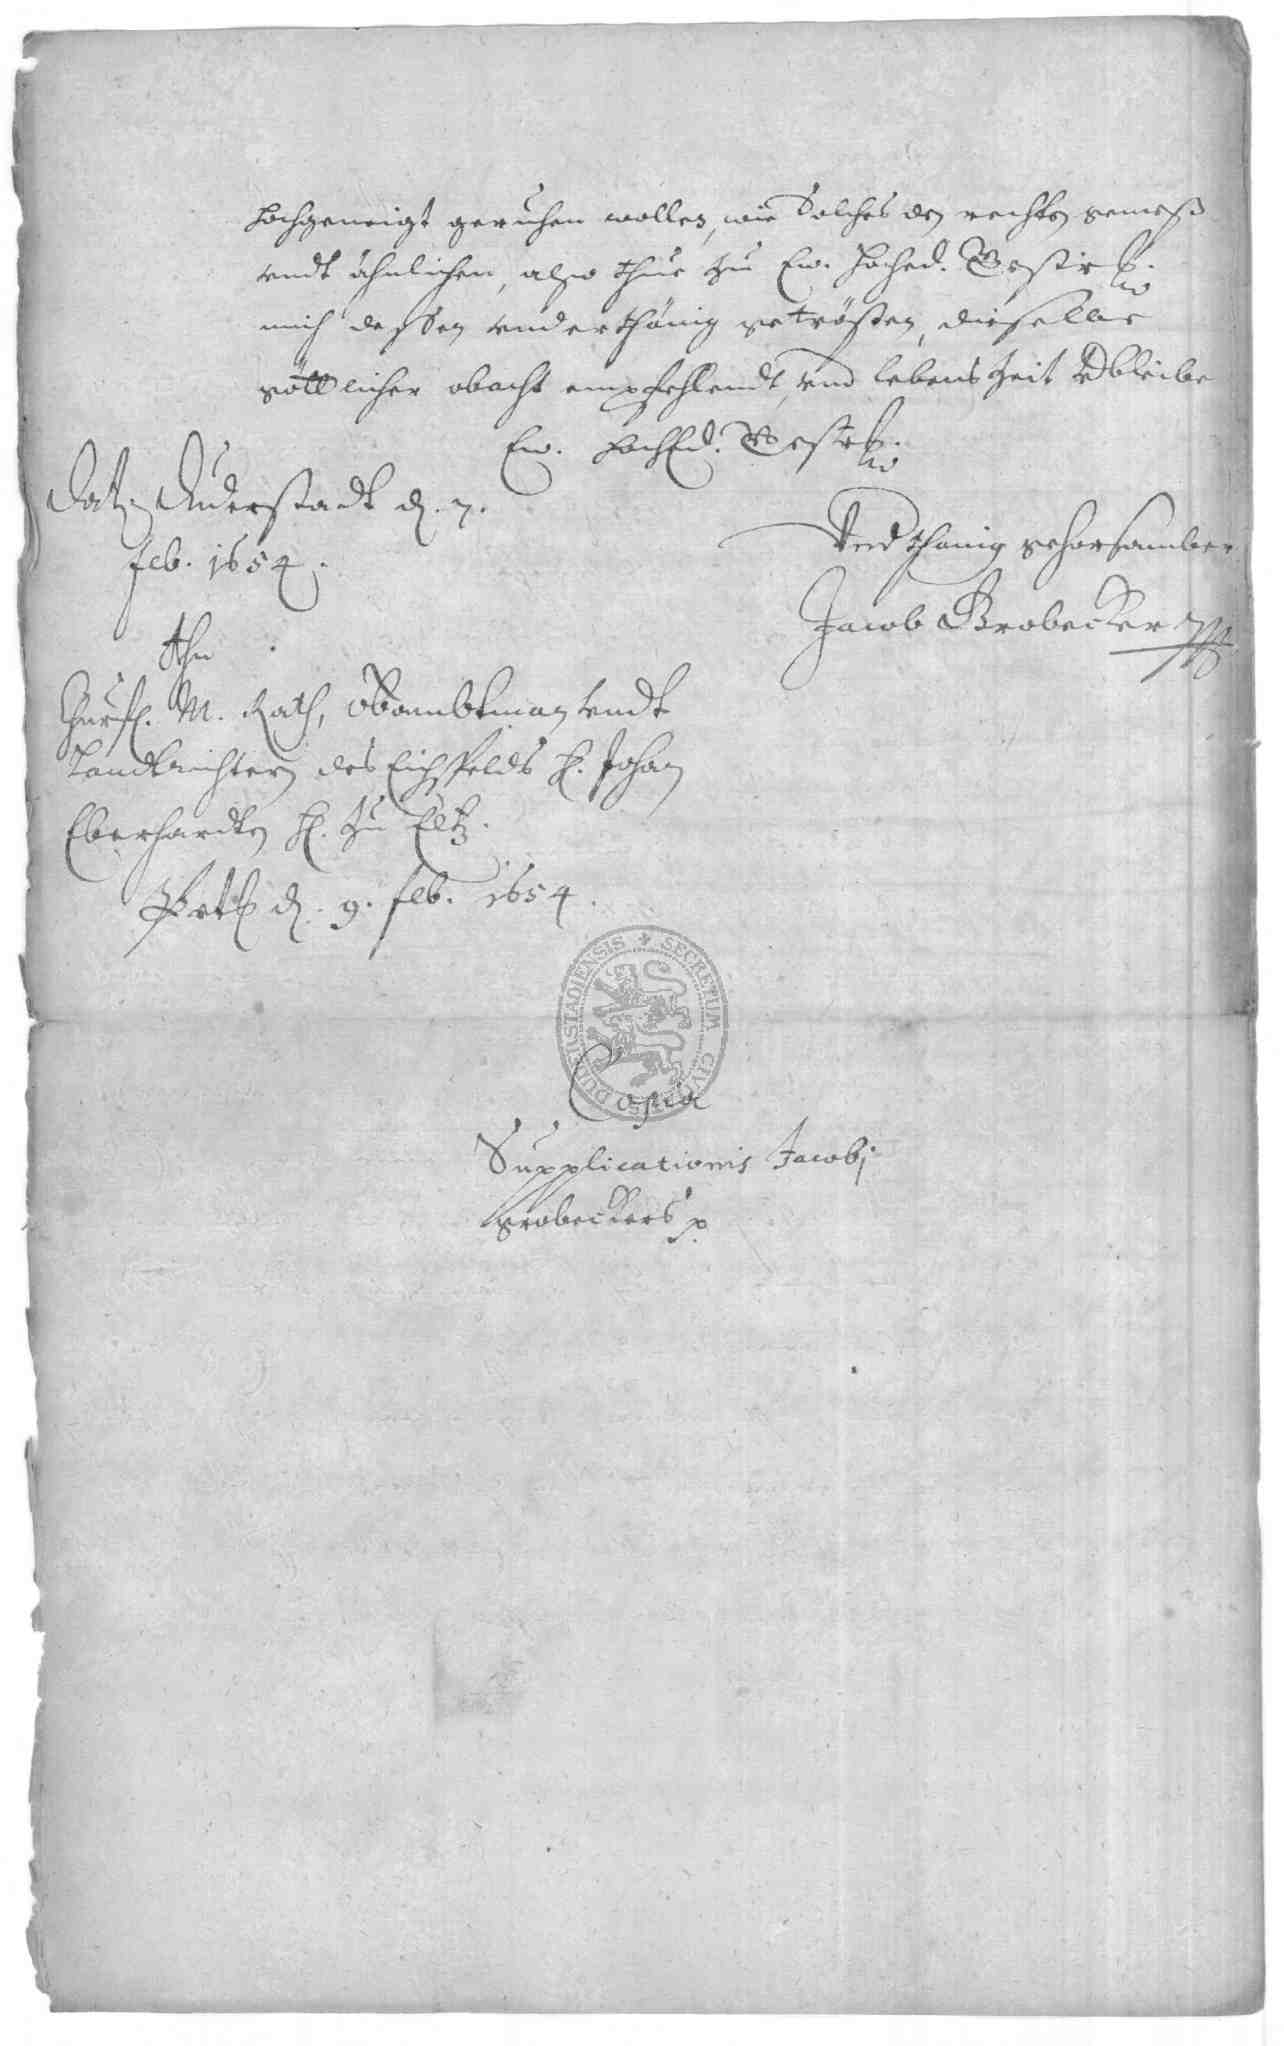 hochgeneigt geruhen wollen, wie Solches den rechten gemeß
undt ähnlichen, also thue zu Ew. hoched. Gestr.
mich dessen underthänig getrösten, dieselbe
göttlicher obacht empfehlendt, und lebens Zeit bleibe
Ew. hochEd. Gestr.
Dat. Duderstadt d. 7.
feb. 1654.
Underthänig gehorsamber
Jacob Brobecker
Ahn
Churf. M. Rath, Obambtman undt
Landtrichtern des Eichsfelds H. Johan
Eberhardten H. zu Eltz.
d. 9. feb. 1654.
SECRETUM CIVIUM DUDERSTADIENSIS
Copia
Supplicationis Jacobi
Brobeckers p.